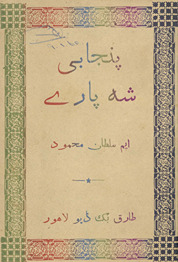 پنجابی
شہ پارے
ایم سلطان محمود
طارق بک ڈپو لاہور